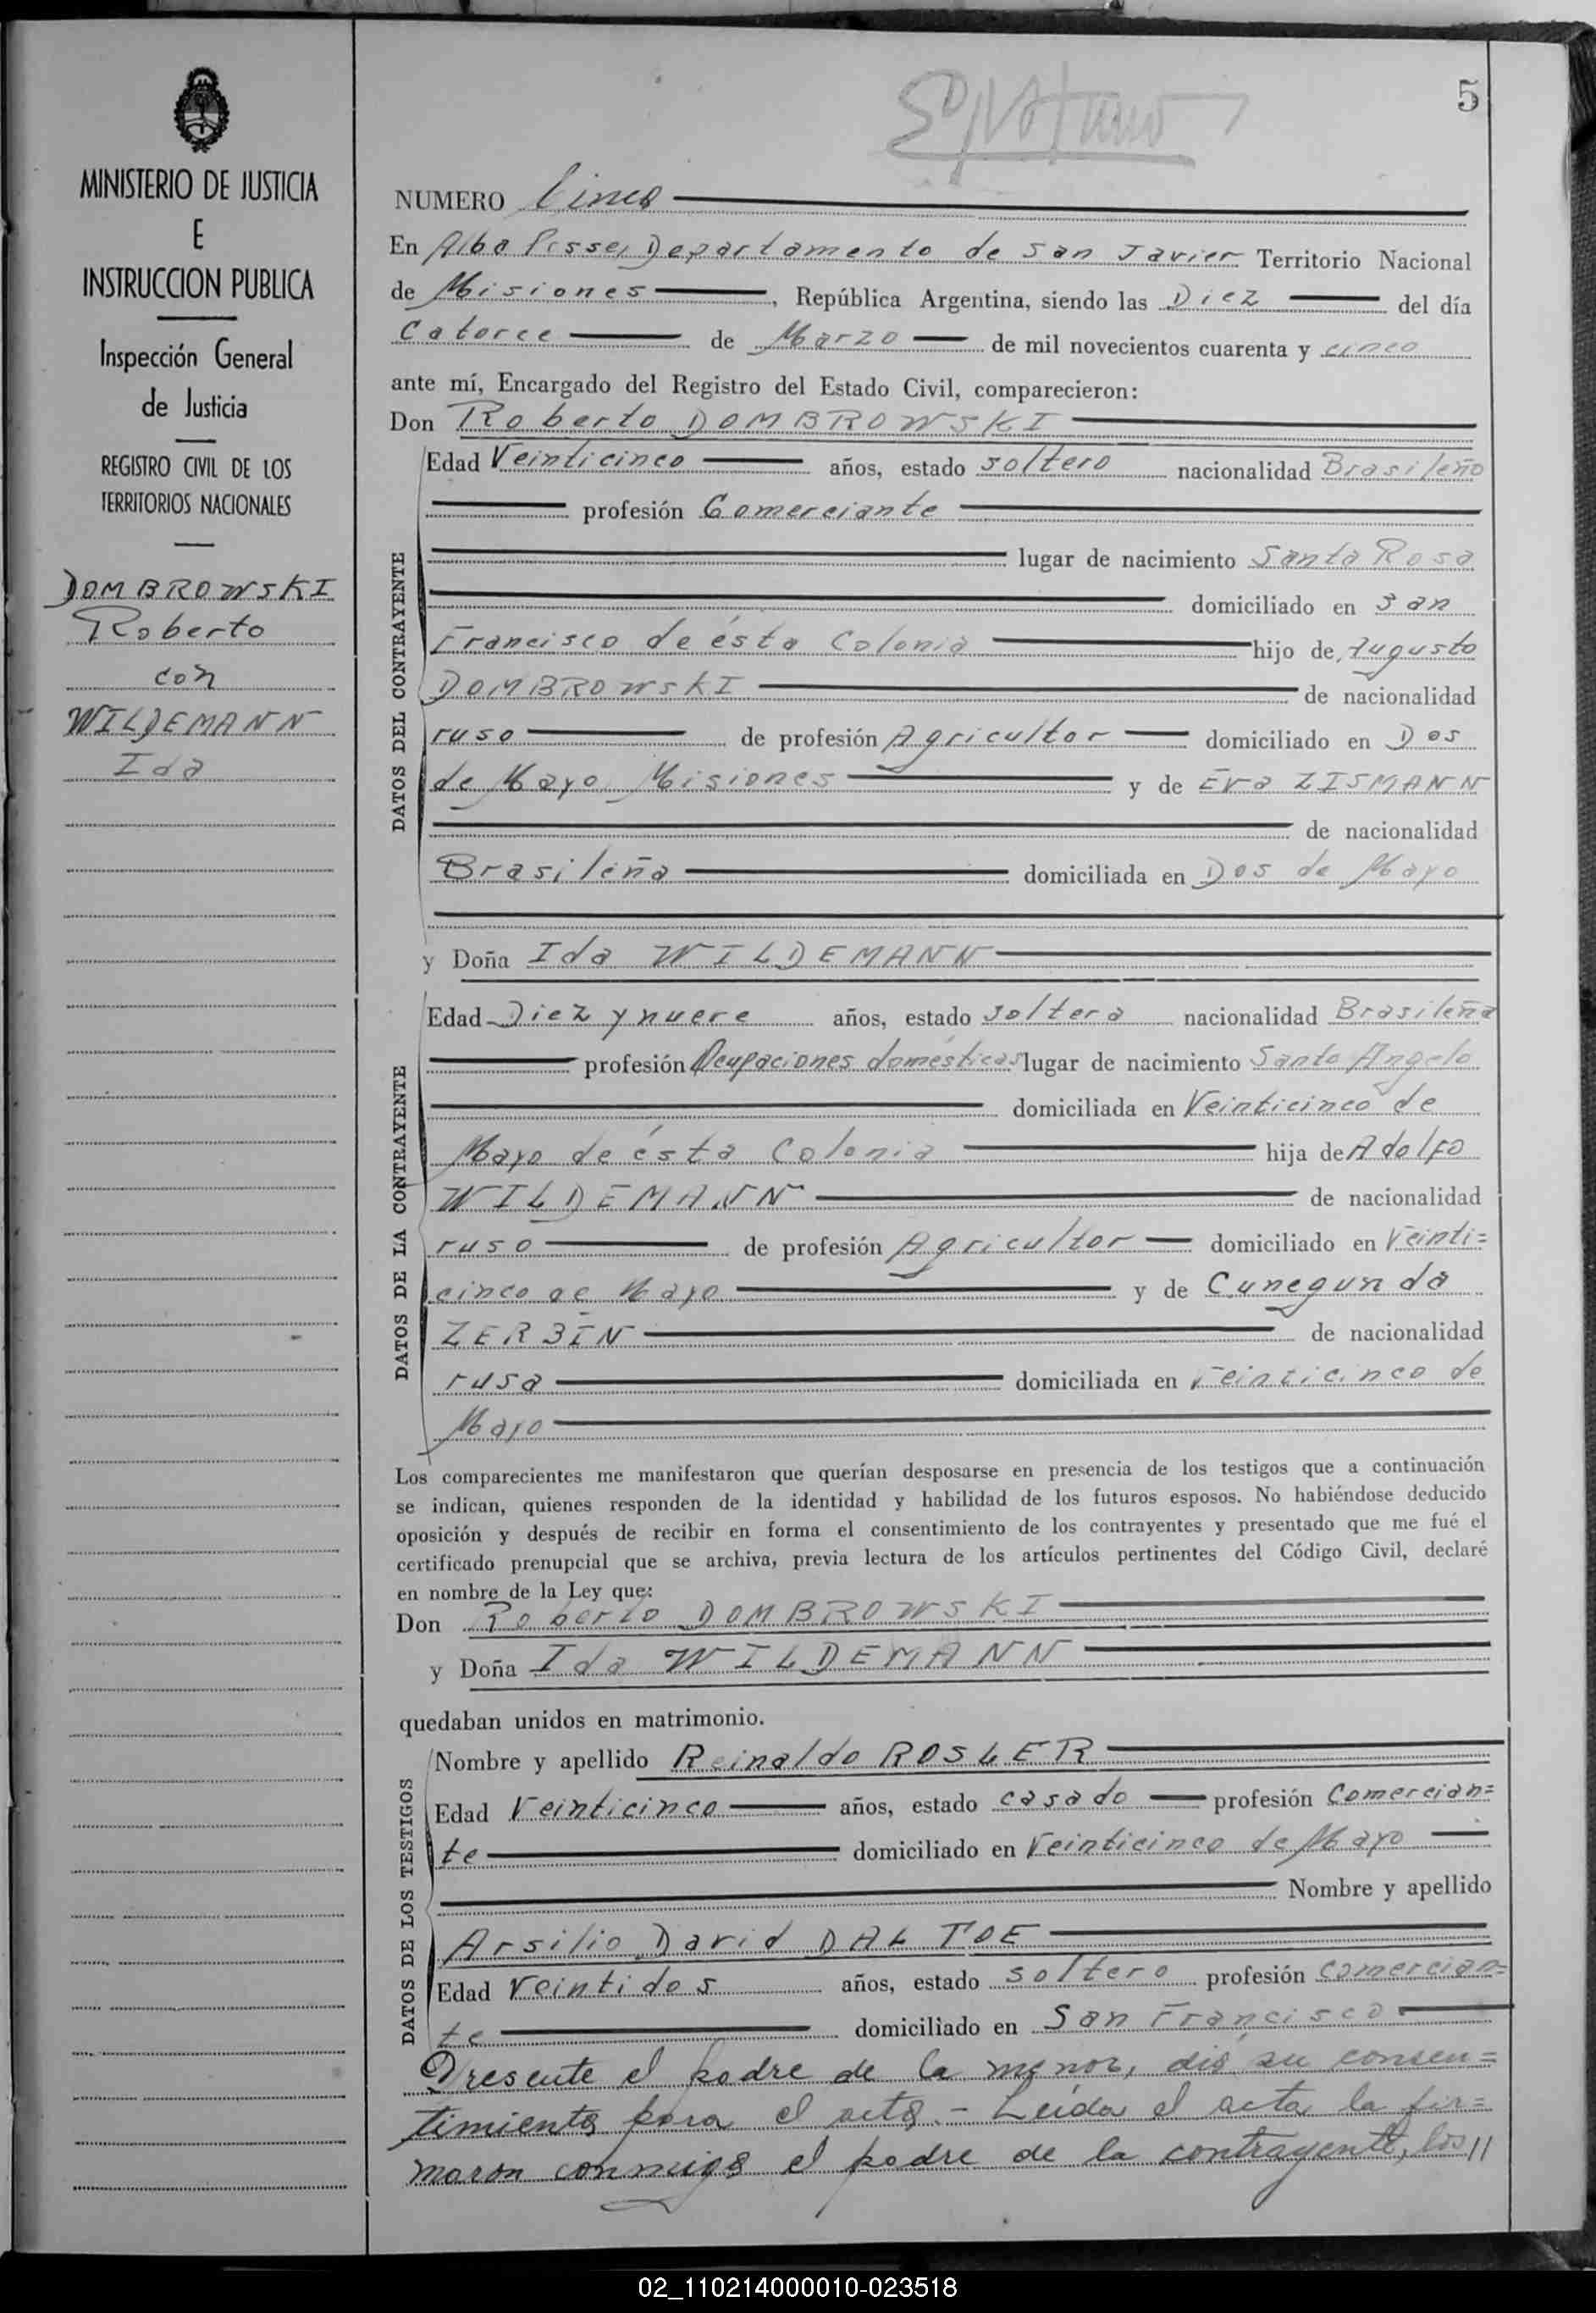 5
MINISTERIO DE JUSTICIA
E
INSTRUCCION PUBLICA
Inspección General
de Justicia
REGISTRO CIVIL DE LOS
TERRITORIOS NACIONALES
DOMBROWSKI
Roberto
con
WILDEMANN
Ida
NUMERO Cinco
En Alba Posse, Departamento de San Javier Territorio Nacional
de Misiones, República Argentina, siendo las Diez del día
Catorce de Marzo de mil novecientos cuarenta y cinco
ante mí, Encargado del Registro del Estado Civil, comparecieron:
Don Roberto DOMBROWSKI
DATOS DEL CONTRAYENTE
Edad Veinticinco años, estado soltero nacionalidad Brasileño
profesión Comerciante
lugar de nacimiento Santa Rosa
domiciliado en San
Francisco de ésta Colonia hijo de Augusto
DOMBROWSKI de nacionalidad
ruso de profesión Agricultor domiciliado en Dos
de Mayo, Misiones y de Eva ZISMANN
de nacionalidad
Brasileña domiciliada en Dos de Mayo
y Doña Ida WILDEMANN
DATOS DE LA CONTRAYENTE
Edad Diez y nueve años, estado soltera nacionalidad Brasileña
profesión Ocupaciones domésticas lugar de nacimiento Santo Angelo
domiciliada en Veinticinco de
Mayo de ésta Colonia hija de Adolfo
WILDEMANN de nacionalidad
ruso de profesión Agricultor domiciliado en Veinti=
cinco de Mayo y de Cunegunda
ZERBIN de nacionalidad
rusa domiciliada en Veinticinco de
Mayo
Los comparecientes me manifestaron que querían desposarse en presencia de los testigos que a continuación
se indican, quienes responden de la identidad y habilidad de los futuros esposos. No habiéndose deducido
oposición y después de recibir en forma el consentimiento de los contrayentes y presentado que me fué el
certificado prenupcial que se archiva, previa lectura de los artículos pertinentes del Código Civil, declaré
en nombre de la Ley que:
Don Roberto DOMBROWSKI
y Doña Ida WILDEMANN
quedaban unidos en matrimonio.
DATOS DE LOS TESTIGOS
Nombre y apellido Reinaldo ROSLER
Edad Veinticinco años, estado casado profesión Comercian=
te domiciliado en Veinticinco de Mayo
Nombre y apellido
Arsilio David DAL TOE
Edad Veintidos años, estado soltero profesión Comercian=
te domiciliado en San Francisco
Presente el padre de la menor, dió su consen=
timiento para el acto.- Leída el acta la fir=
maron conmigo el padre de la contrayente, los //
02_110214000010-023518